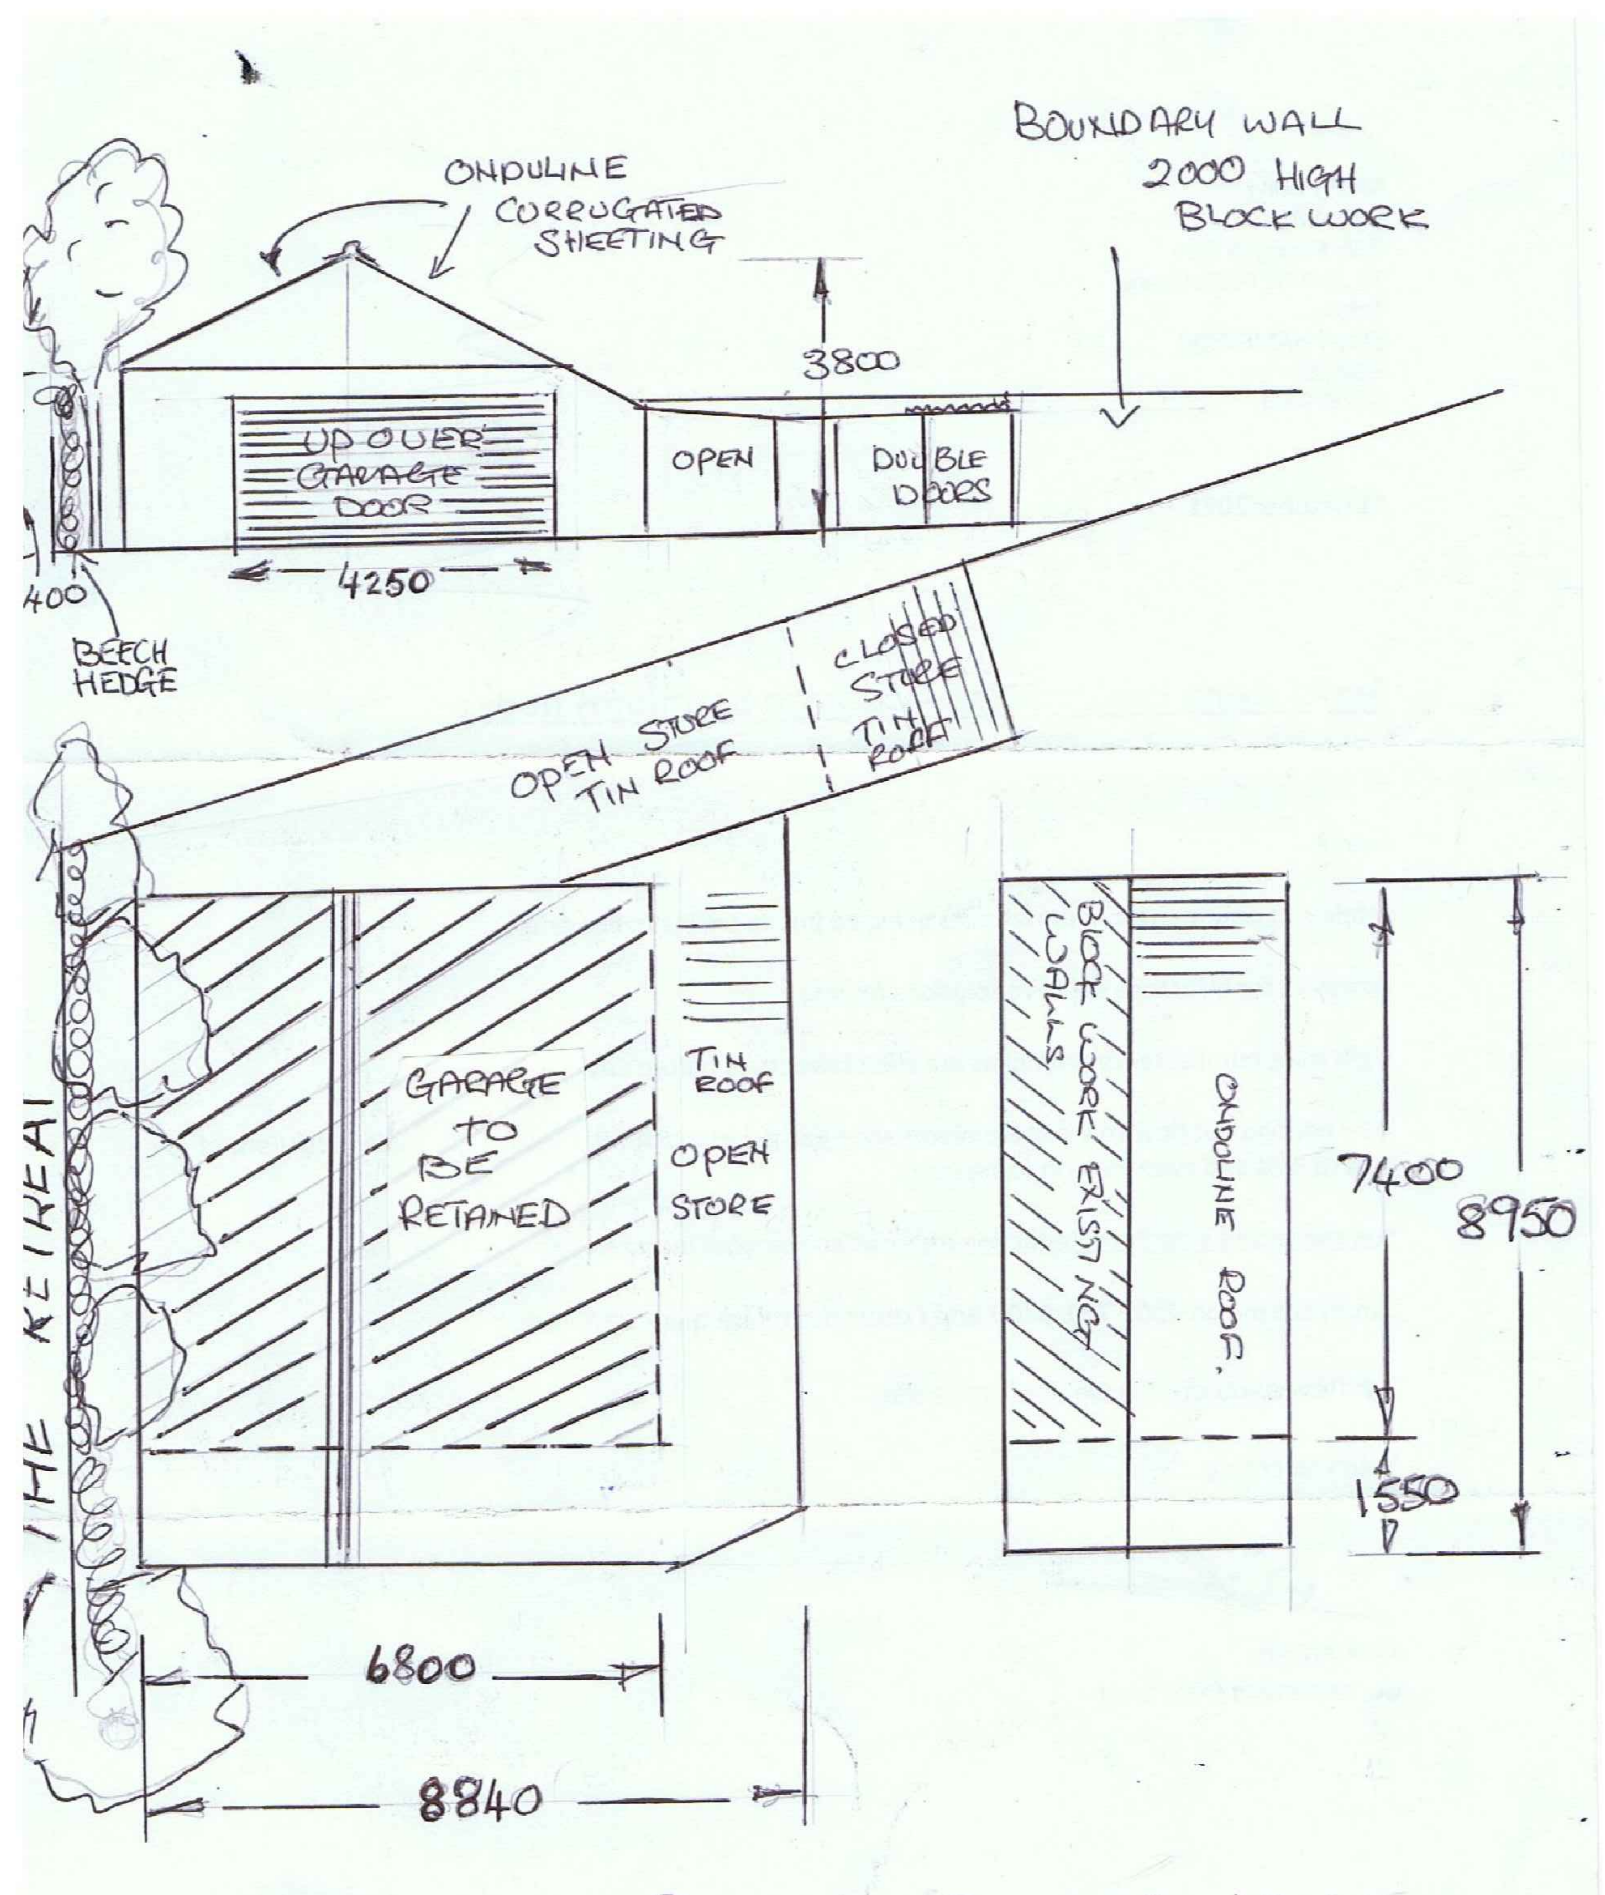 BOUNDARY WALL
2000 HIGH
BLOCK WORK
ONDULINE
CURRUGATED
SHEETING
3800
UP OVER
GARAGE
DOOR
OPEN
DOUBLE
DOORS
4250
400
BEECH
HEDGE
CLOSED
STORE
TIN
ROOF
OPEN STORE
TIN ROOF
THE RETREAT
GARAGE
TO
BE
RETAINED
TIN
ROOF
OPEN
STORE
BLOCK WORK EXISTING
WALLS
ONDULINE ROOF.
7400
8950
1550
6800
8840